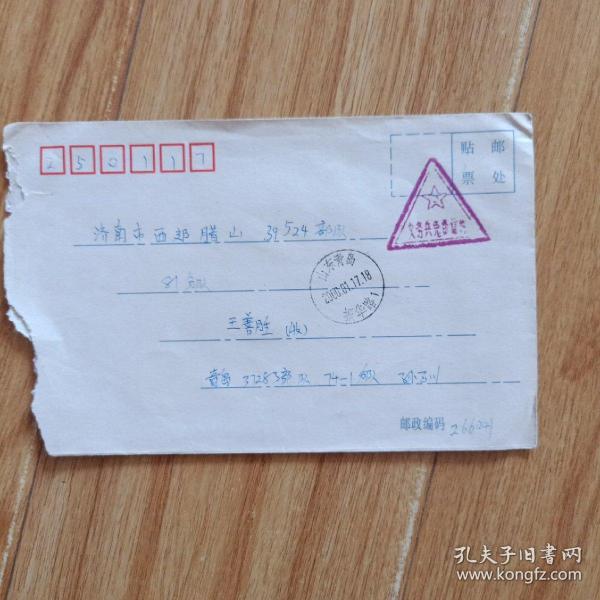 250117
贴 邮
票 处
义务兵免费信件
济南市西郊腊山 39524部队
81分队
山东青岛
2000.01.17.18
新华路1
王善胜 (收)
青岛 37283部队 74-1分队
邮政编码 266041
孔夫子旧书网
www.kongfz.com